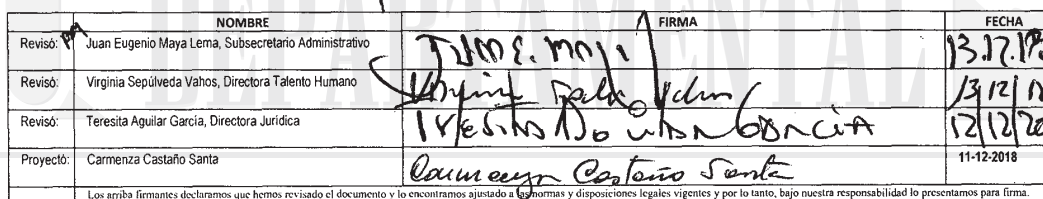 DEPARTAMENTAL
NOMBRE FIRMA FECHA
Revisó: Juan Eugenio Maya Lema, Subsecretario Administrativo 13.12.18
Revisó: Virginia Sepúlveda Vahos, Directora Talento Humano Virginia 13/12/18
Revisó: Teresita Aguilar García, Directora Jurídica GARCIA 12/12/20
Proyectó: Carmenza Castaño Santa Carmenza Castaño Santa 11-12-2018
Los arriba firmantes declaramos que hemos revisado el documento y lo encontramos ajustado a las normas y disposiciones legales vigentes y por lo tanto, bajo nuestra responsabilidad lo presentamos para firma.